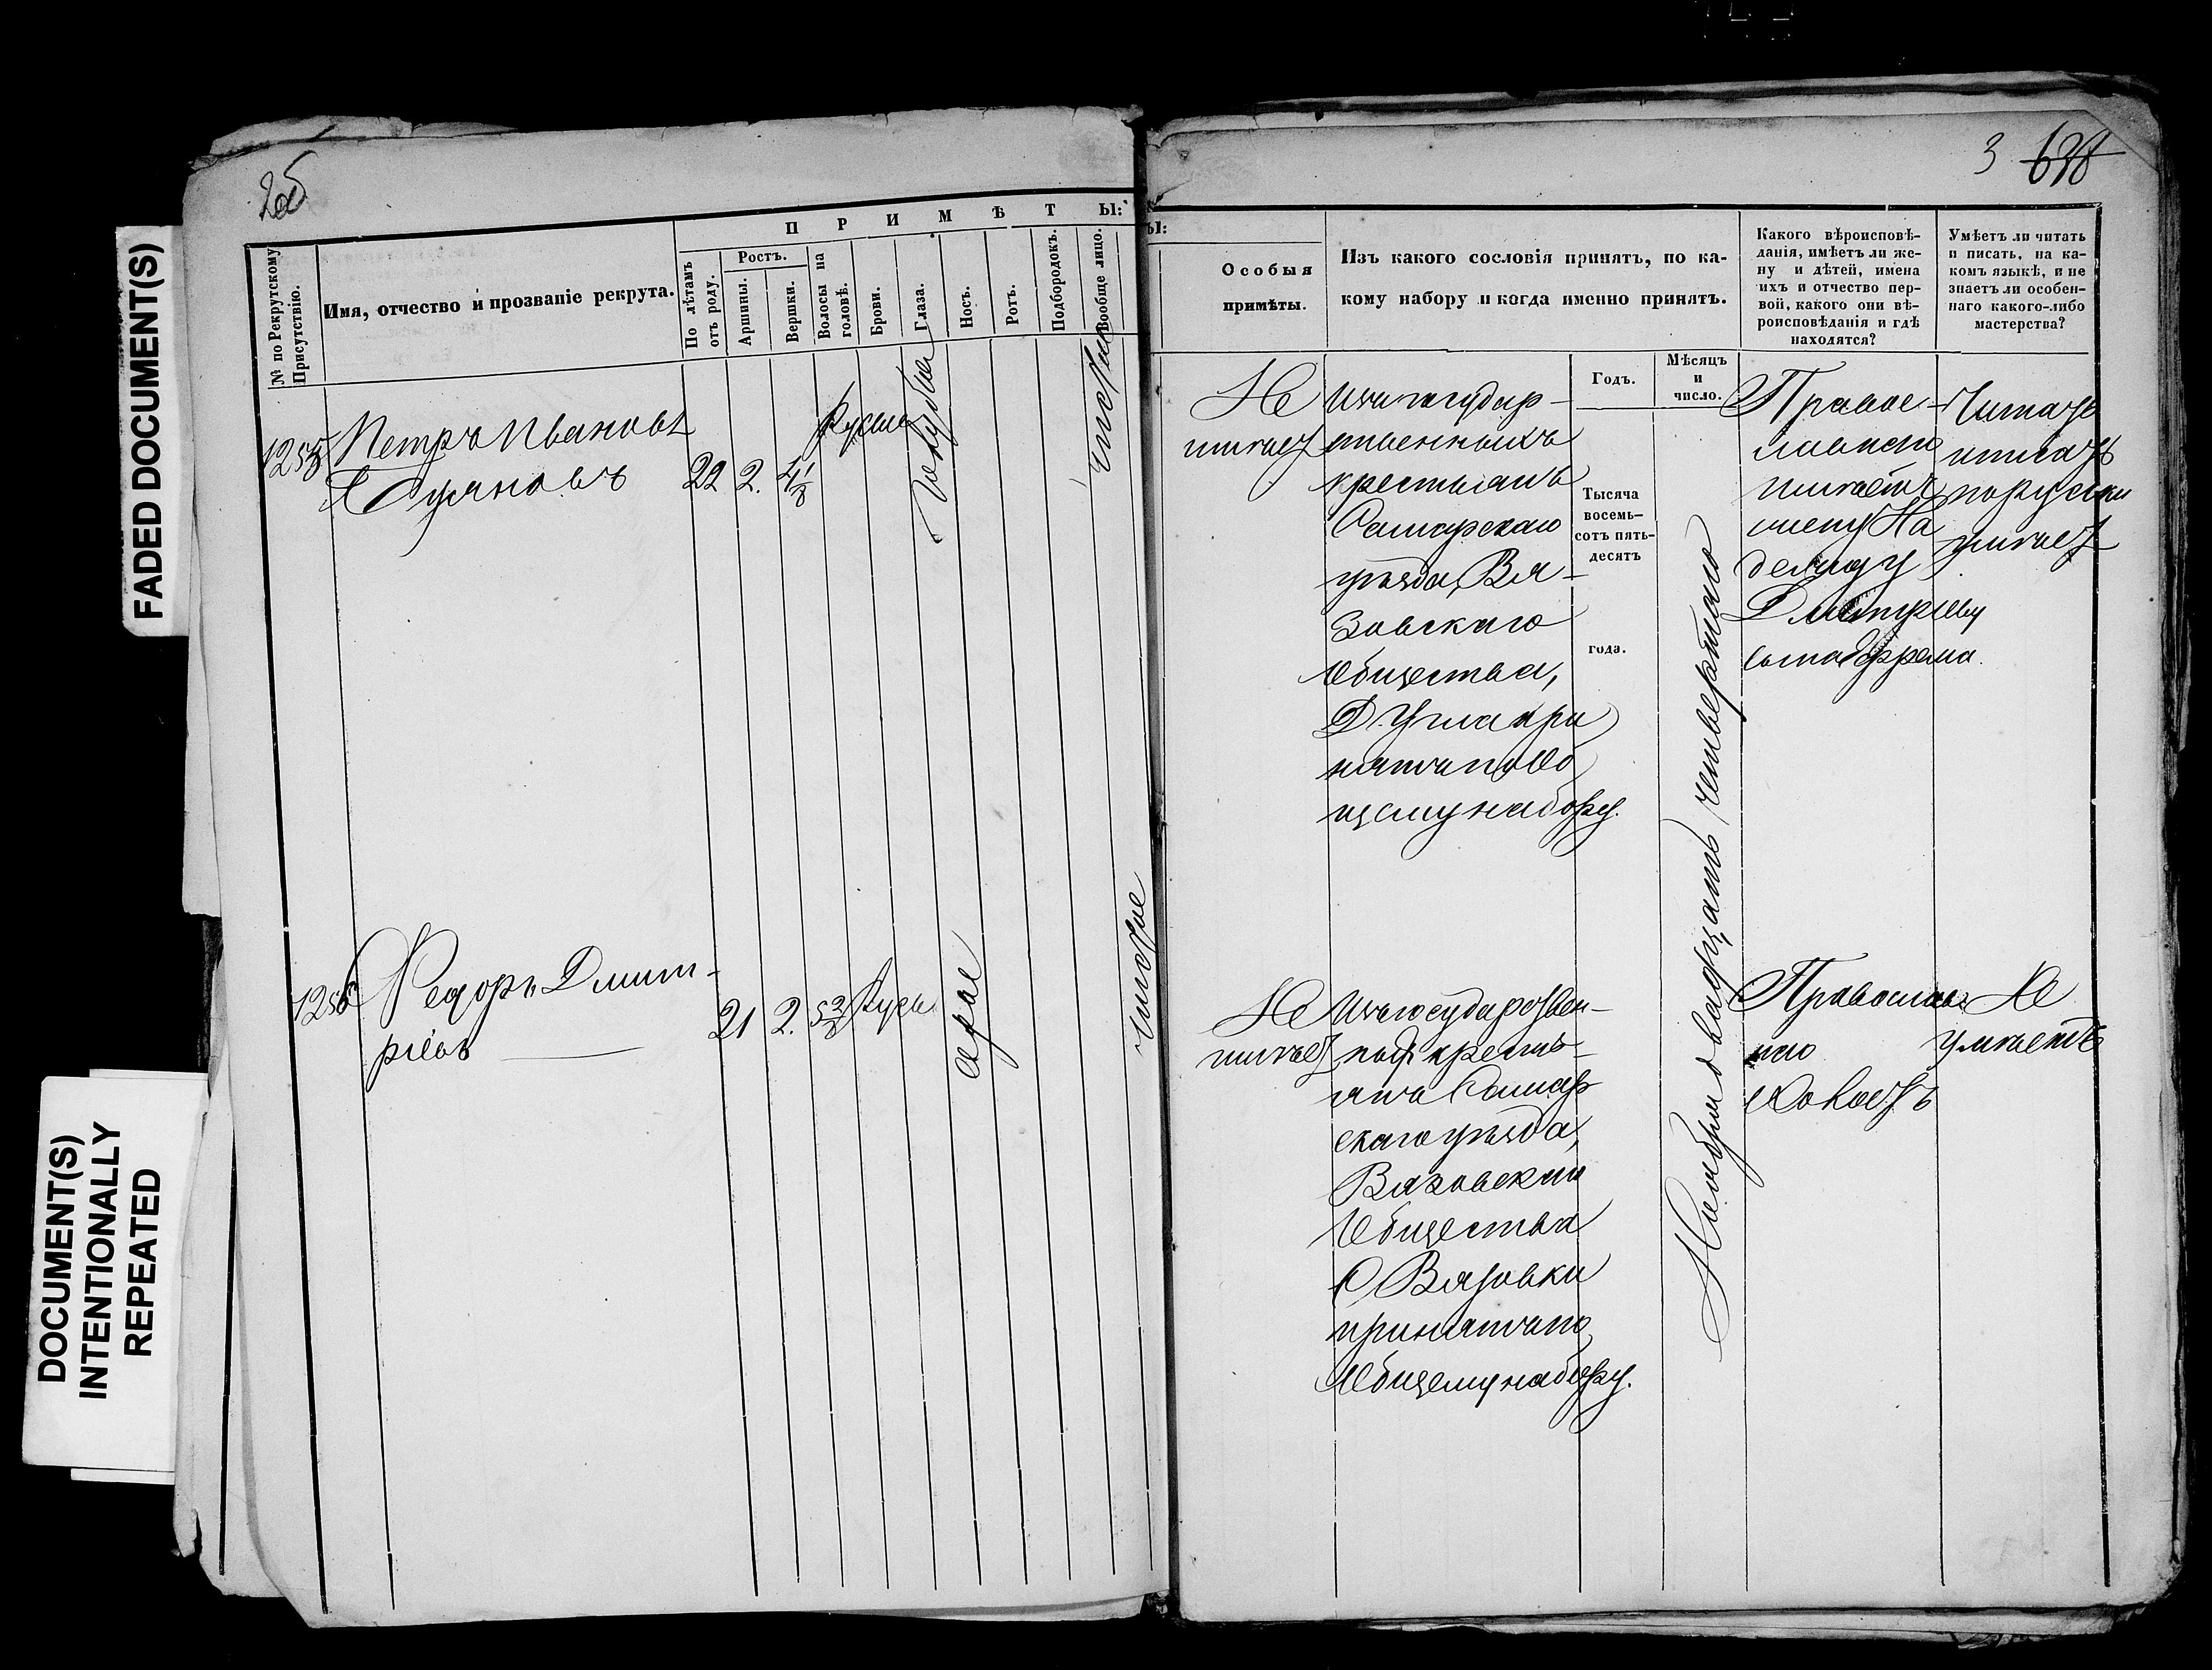 FADED DOCUMENT(S)
DOCUMENT(S)
INTENTIONALLY
REPEATED
2об
№ по Рекрутскому
Присутствію.
Имя, отчество и прозваніе рекрута.
ПРИМѢТЫ:
По лѣтамъ
отъ роду.
Ростъ.
Аршины.
Вершки.
Волосы на
головѣ.
Брови.
Глаза.
Носъ.
Ротъ.
Подбородокъ.
Вообще лицо.
Петръ Ивановъ
22 2. 4 1/8
Русые
Голубые
чистое
1256
Ѳедоръ Дмит-
ріевъ
21 2. 5 2/8 Русы
серые
чистое
3 678
Ы:
Особыя
примѣты.
Изъ какого сословія принятъ, по ка-
кому набору и когда именно принятъ.
Годъ.
Мѣсяцъ
и
число.
Какого вѣроисповѣ-
данія, имѣетъ ли же-
ну и дѣтей, имена
ихъ и отчество пер-
вой, какого они вѣ-
роисповѣданія и гдѣ
находятся?
Умѣетъ ли читать
и писать, на ка-
комъ языкѣ, и не
знаетъ ли особен-
наго какого-либо
мастерства?
Не
имѣет
Изъ государ-
ственныхъ
крестьянъ
Самарскаго
уѣзда, Вя-
зовскаго
Общества,
при
нятъ по Об
щему набору.
Тысяча
восемь-
сотъ пять-
десятъ
года.
Ноября двадцать четвертаго
Правос-
лавнаго
имѣетъ
жену На
дежду
Дмитріеву
сына Ефрема.
Читать
писать
порусски
умѣет
Не
имѣет
Изъ государствен-
ных кресть-
янъ Самар
скаго уѣзда,
Вязовскаго
Общества
С Вязовки
принятъ по
Общему набору.
Православ
наго
Холостъ
Не
умѣетъ